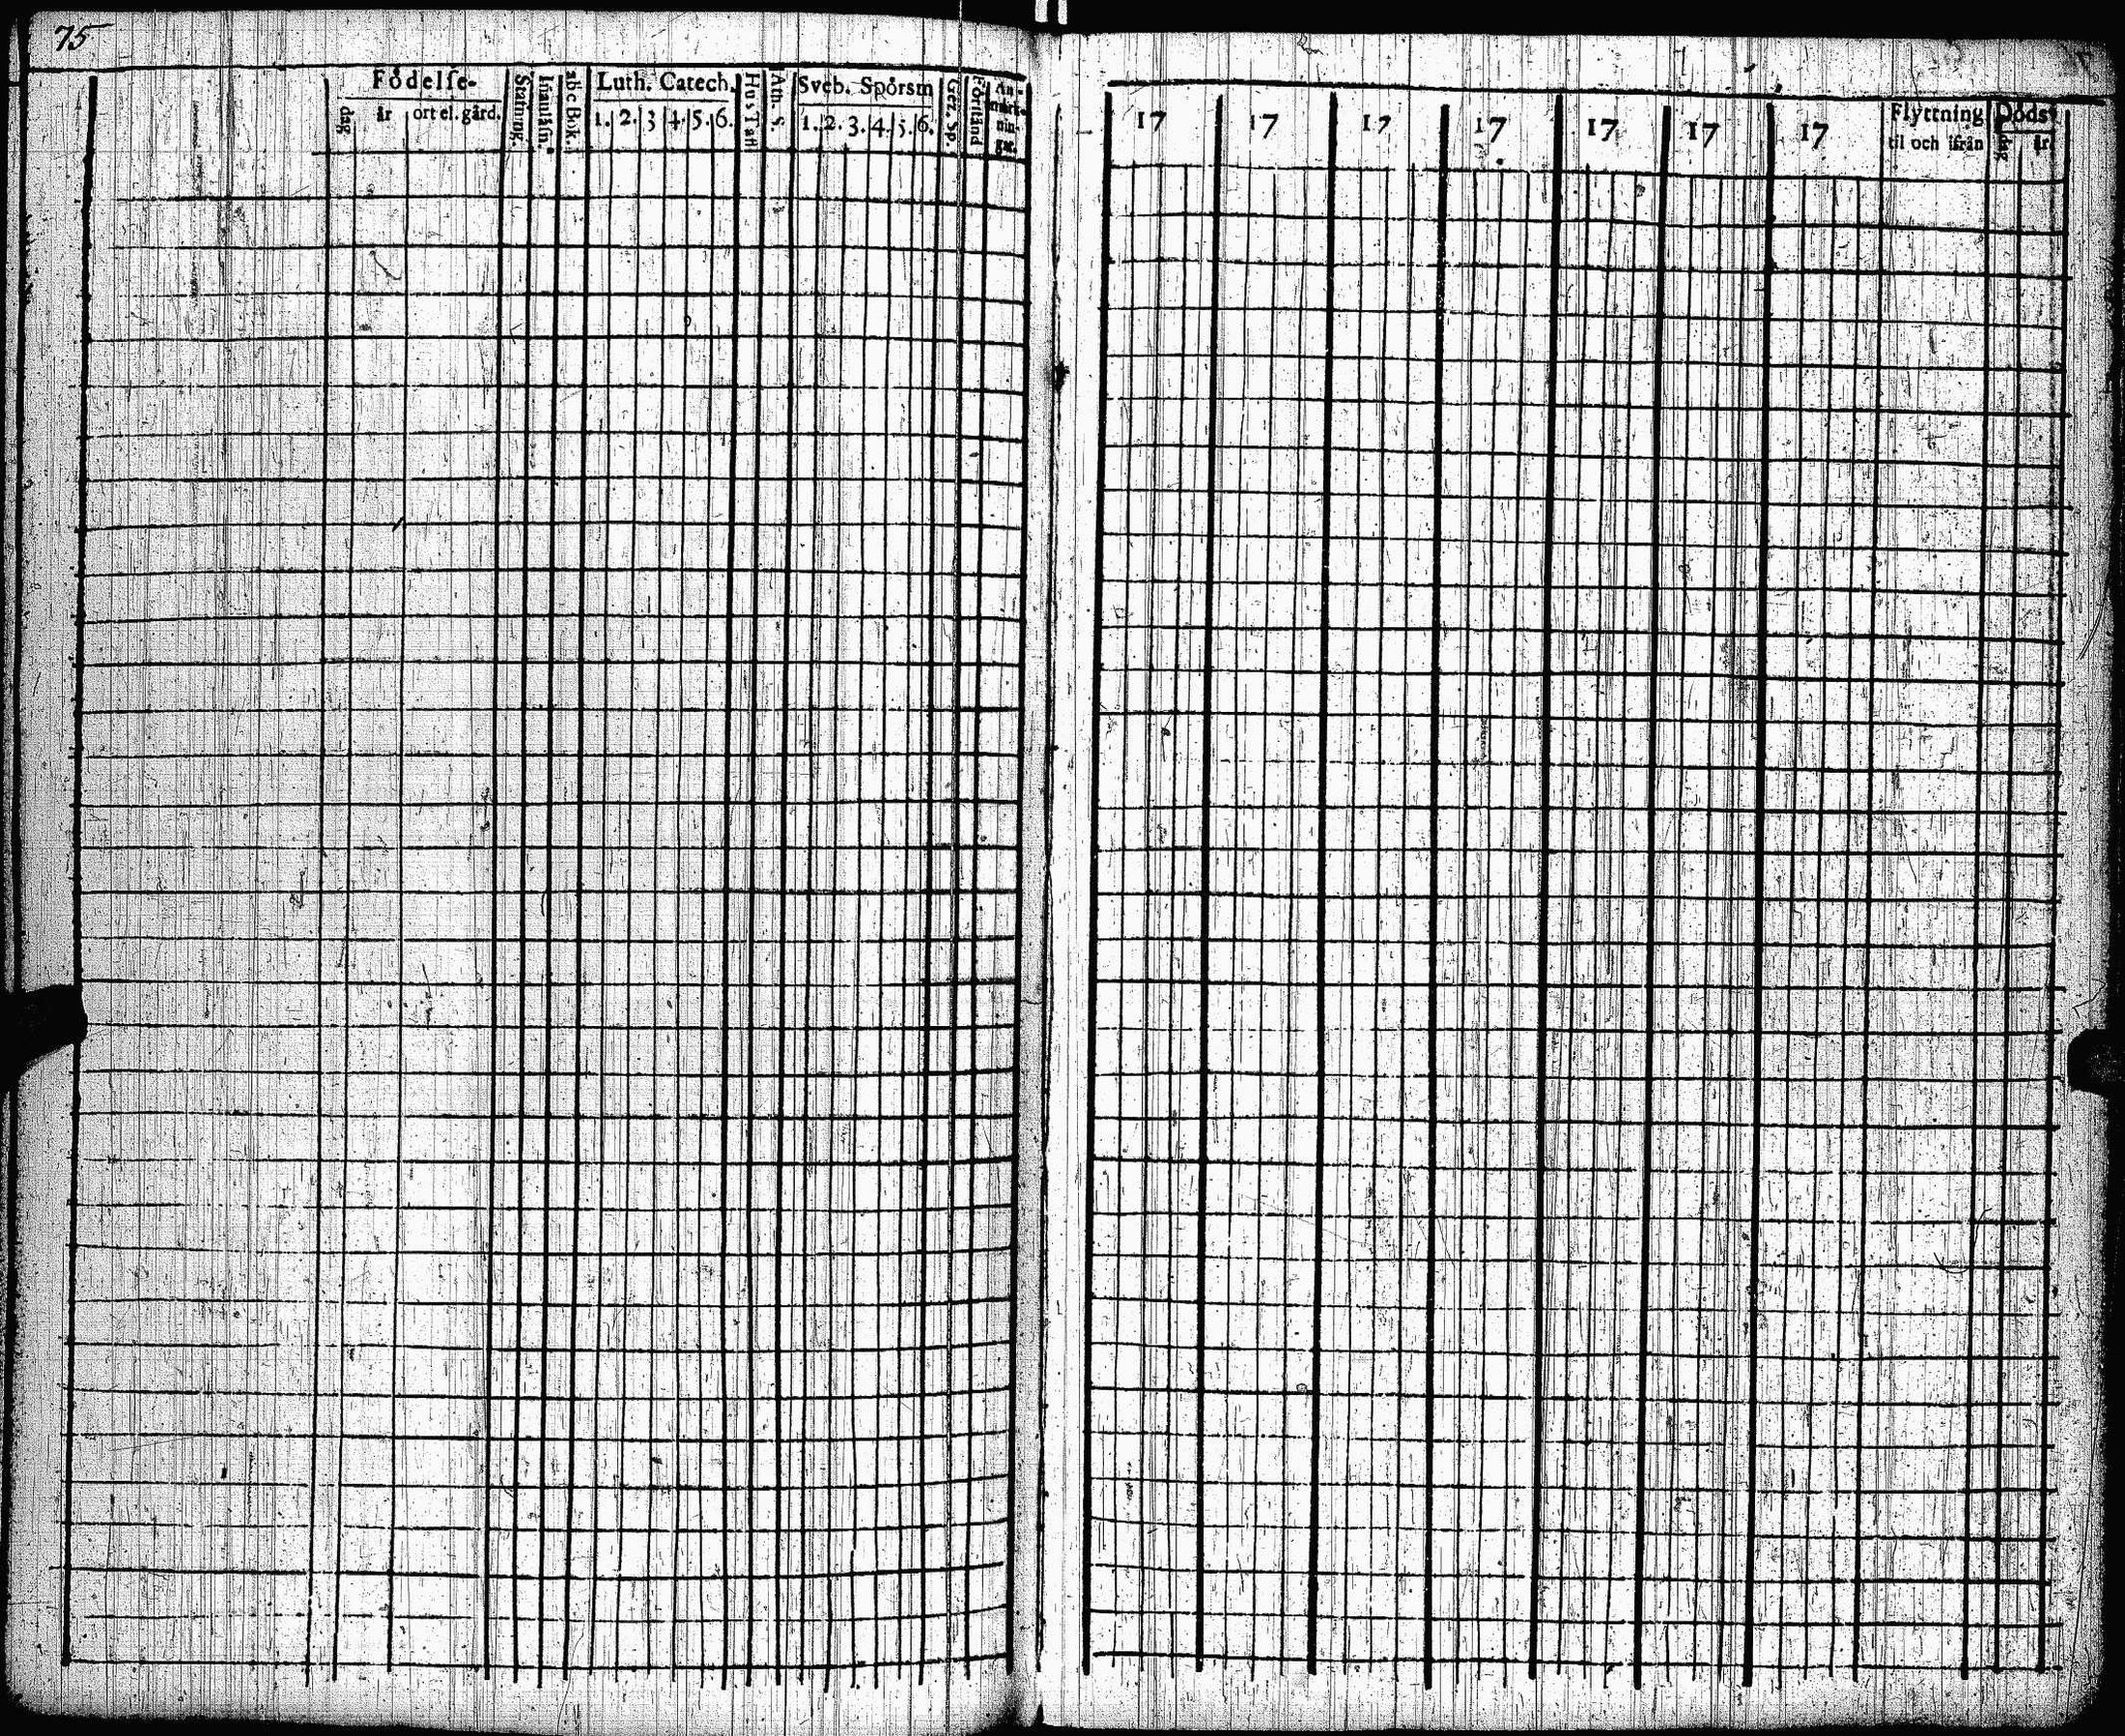 75
Födelse-
dag år ort el. gård.
Statning.
Innanläsn.
abc Bok.
Luth. Catech.
1. 2. 3 4. 5. 6.
Hus Tafl
Ath. S.
Sveb. Spörsm
1. 2. 3. 4. 5. 6.
Ger. Sp.
Förstånd
An-
märk-
nin-
gar.
17 17 17 17 17 17 17
Flyttning
til och ifrån
Döds-
dag år.